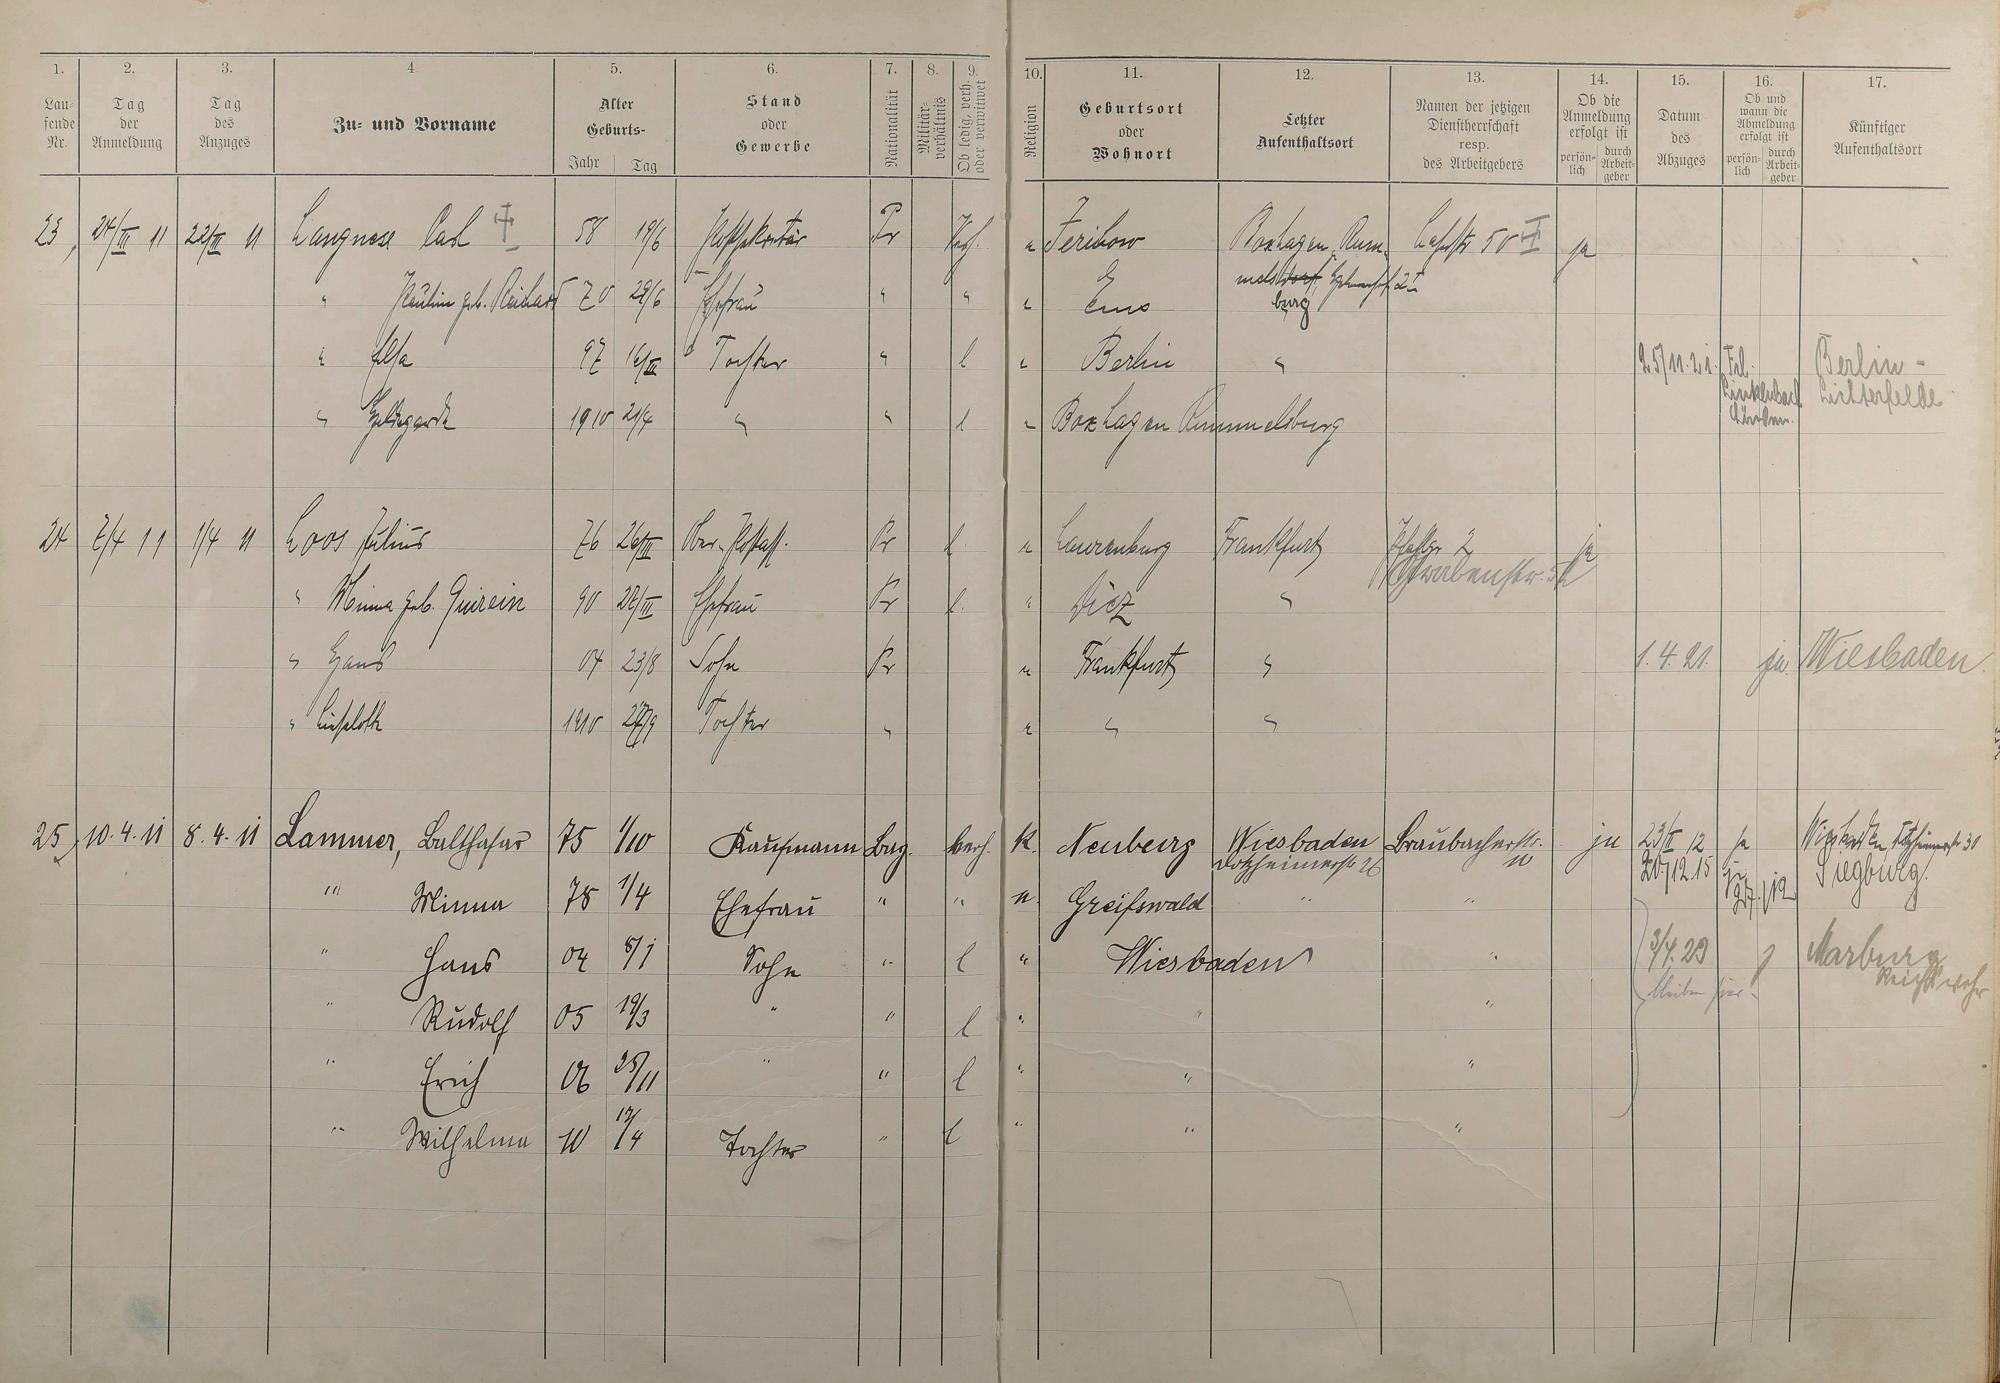 1. 2. 3. 4 5. 6. 7. 8. 9. 10. 11. 12. 13. 14. 15. 16. 17.
Lau-
fende
Nr.
Tag
der
Anmeldung
Tag
des
Anzuges
Zu- und Vorname
Alter
Geburts-
Jahr Tag
Stand
oder
Gewerbe
Nationalität
Militär-
verhältnis
Ob ledig, verh.
oder verwitwet
Religion
Geburtsort
oder
Wohnort
Letzter
Aufenthaltsort
Namen der jetzigen
Dienstherrschaft
resp.
des Arbeitgebers
Ob die
Anmeldung
erfolgt ist
persön-
lich
durch
Arbeit-
geber
Datum
des
Abzuges
Ob und
wann die
Abmeldung
erfolgt ist
persön-
lich
durch
Arbeit-
geber
Künftiger
Aufenthaltsort
23, 24/III 11 22/III 11 Langnese Carl 58 19/6 Pr " Boxhagen Rum- Lahnstr 50 ja
melsdorf
burg
" geb. Reichard 70 29/6 Ehefrau " " " Ems
" Elsa 97 16/III Tochter " l " Berlin " 25/11.21. Frl. Berlin-
Lichterfelde
" Hildegarde 1910 21/4 " " l " Boxhagen Rummelsburg
24 7/4 11 1/4 11 Loos Julius 76 26/III Pr Laurenburg Frankfurt 2 ja
" Minna geb. Quirein 90 Ehefrau Pr " Diez "
" Hans 04 23/8 Sohn Pr " Frankfurt " 1.4.21. ja Wiesbaden.
" Lieselotte 1910 Tochter " " " "
25, 10.4.11 8.4.11 Lammer, Balthasar 75 1/10 Kaufmann Bay. verh. K. Neuberg Wiesbaden Braubacherstr. ja 23/II 12 ja Wiesbaden
Dotzheimerstr 26 10 20/12.15 Siegburg.
" Minna 78 1/4 Ehefrau " " " Greifswald " "
" Hans 04 8/1 Sohn " l " Wiesbaden " 3/4.23 Marburg
Reichswehr
bleiben hier.
" Rudolf 05 19/3 " " l " " "
" Erich 06 25/11 " " l " " "
" Wilhelma 10 17/4 Tochter " l " " "